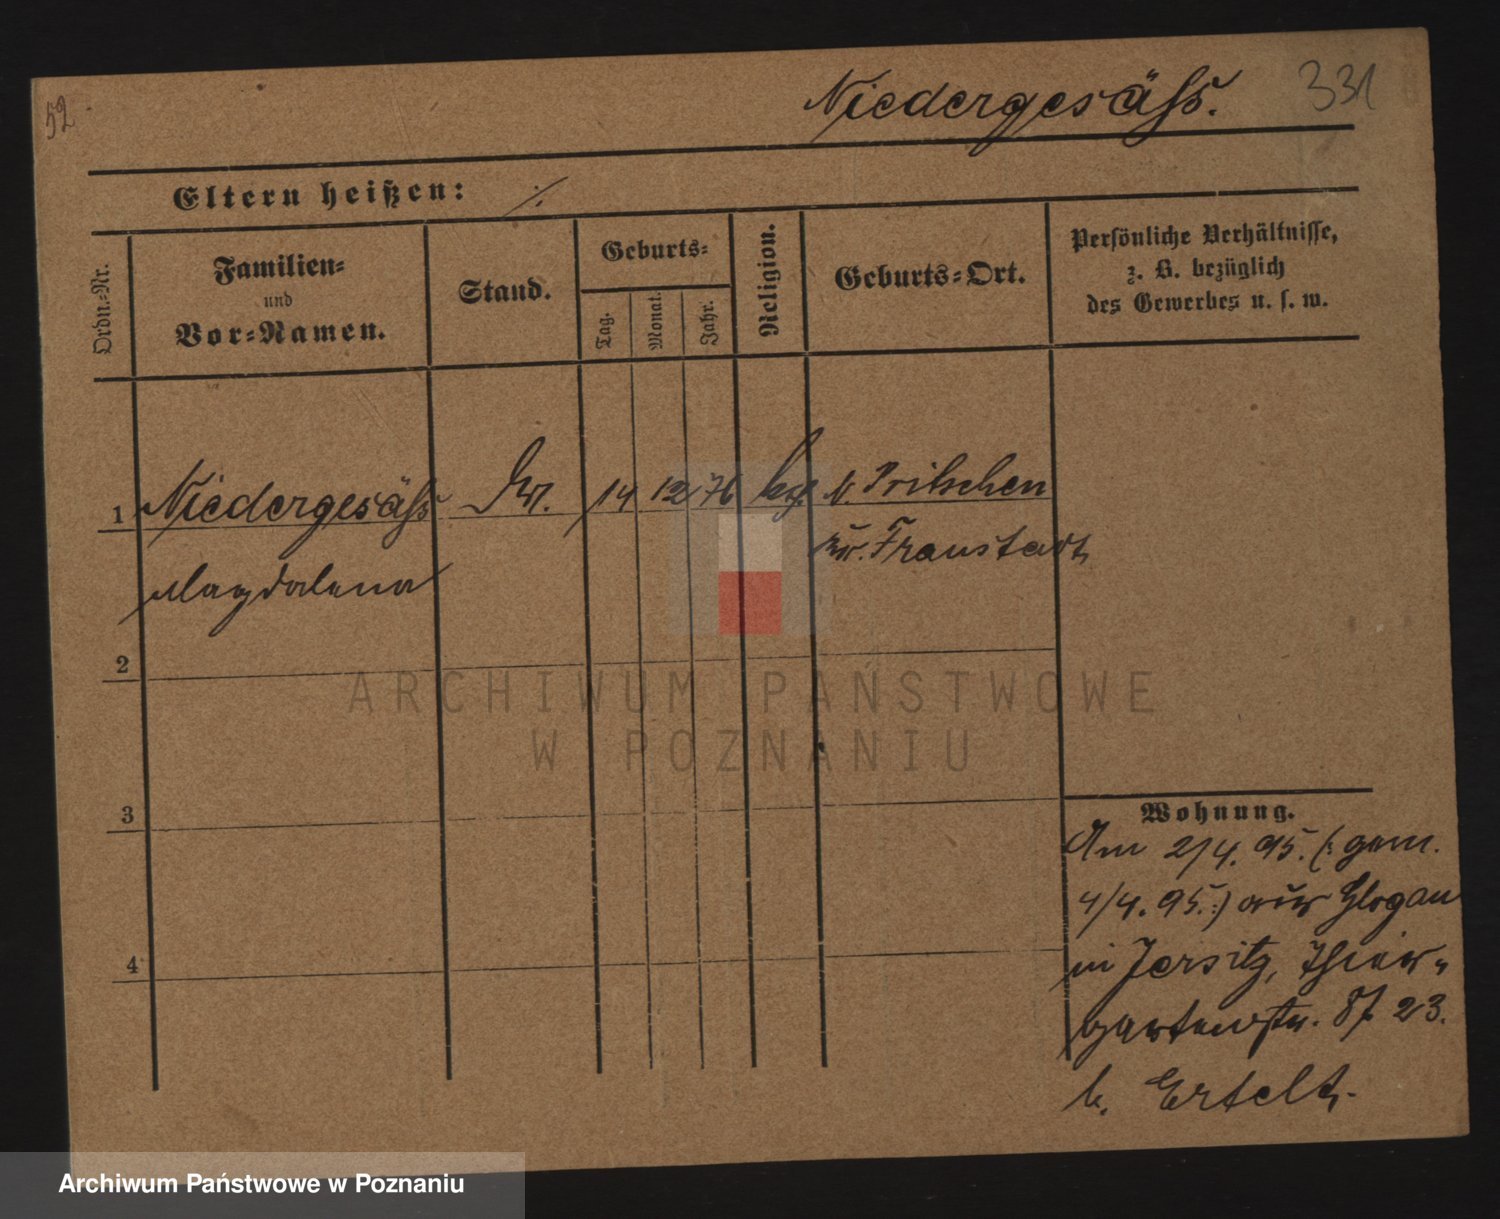 52
Niedergesäß.
331
Eltern heißen: ./.
Ordn.=Nr.
Familien=
und
Vor=Namen.
Stand.
Geburts=
Tag.
Monat.
Jahr.
Religion.
Geburts=Ort.
Persönliche Verhältnisse,
z. B. bezüglich
des Gewerbes u. s. w.
1 Niedergesäß 14 12 76 N. Pritschen
Kr. Fraustadt
Magdalena
2
3
4
Wohnung.
Am 2/4. 95. (: gem.
4/4. 95. :) aus Glogau
in Jersitz, Thier-
gartenstr. 23.
b. Ertelt.
ARCHIWUM PAŃSTWOWE
W POZNANIU
Archiwum Państwowe w Poznaniu